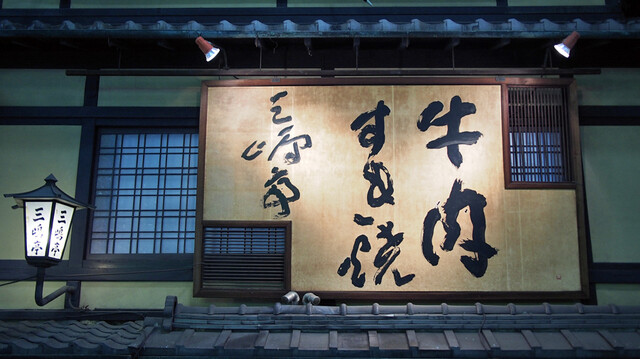 牛肉
すき焼
三嶋亭
三嶋亭
三嶋亭